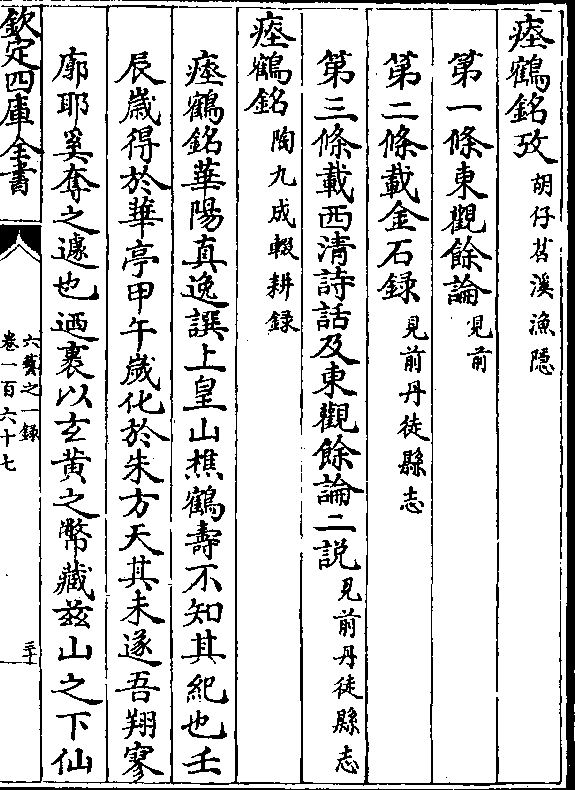 瘞鶴銘攷胡仔苕溪漁隱
第一條東觀餘論見前
第二條載金石録見前丹徒縣志
第三條載西清詩話及東觀餘論二説見前丹徒縣志
瘞鶴銘陶九成輟耕録
瘞鶴銘華陽真逸譔上皇山樵鶴壽不知其紀也壬
辰嵗得於華亭甲午嵗化於朱方天其未遂吾翔寥
廓耶奚奪之遽也迺裹以玄黄之幣藏兹山之下仙
欽定四庫全書
六藝之一録
卷一百六十七
三十